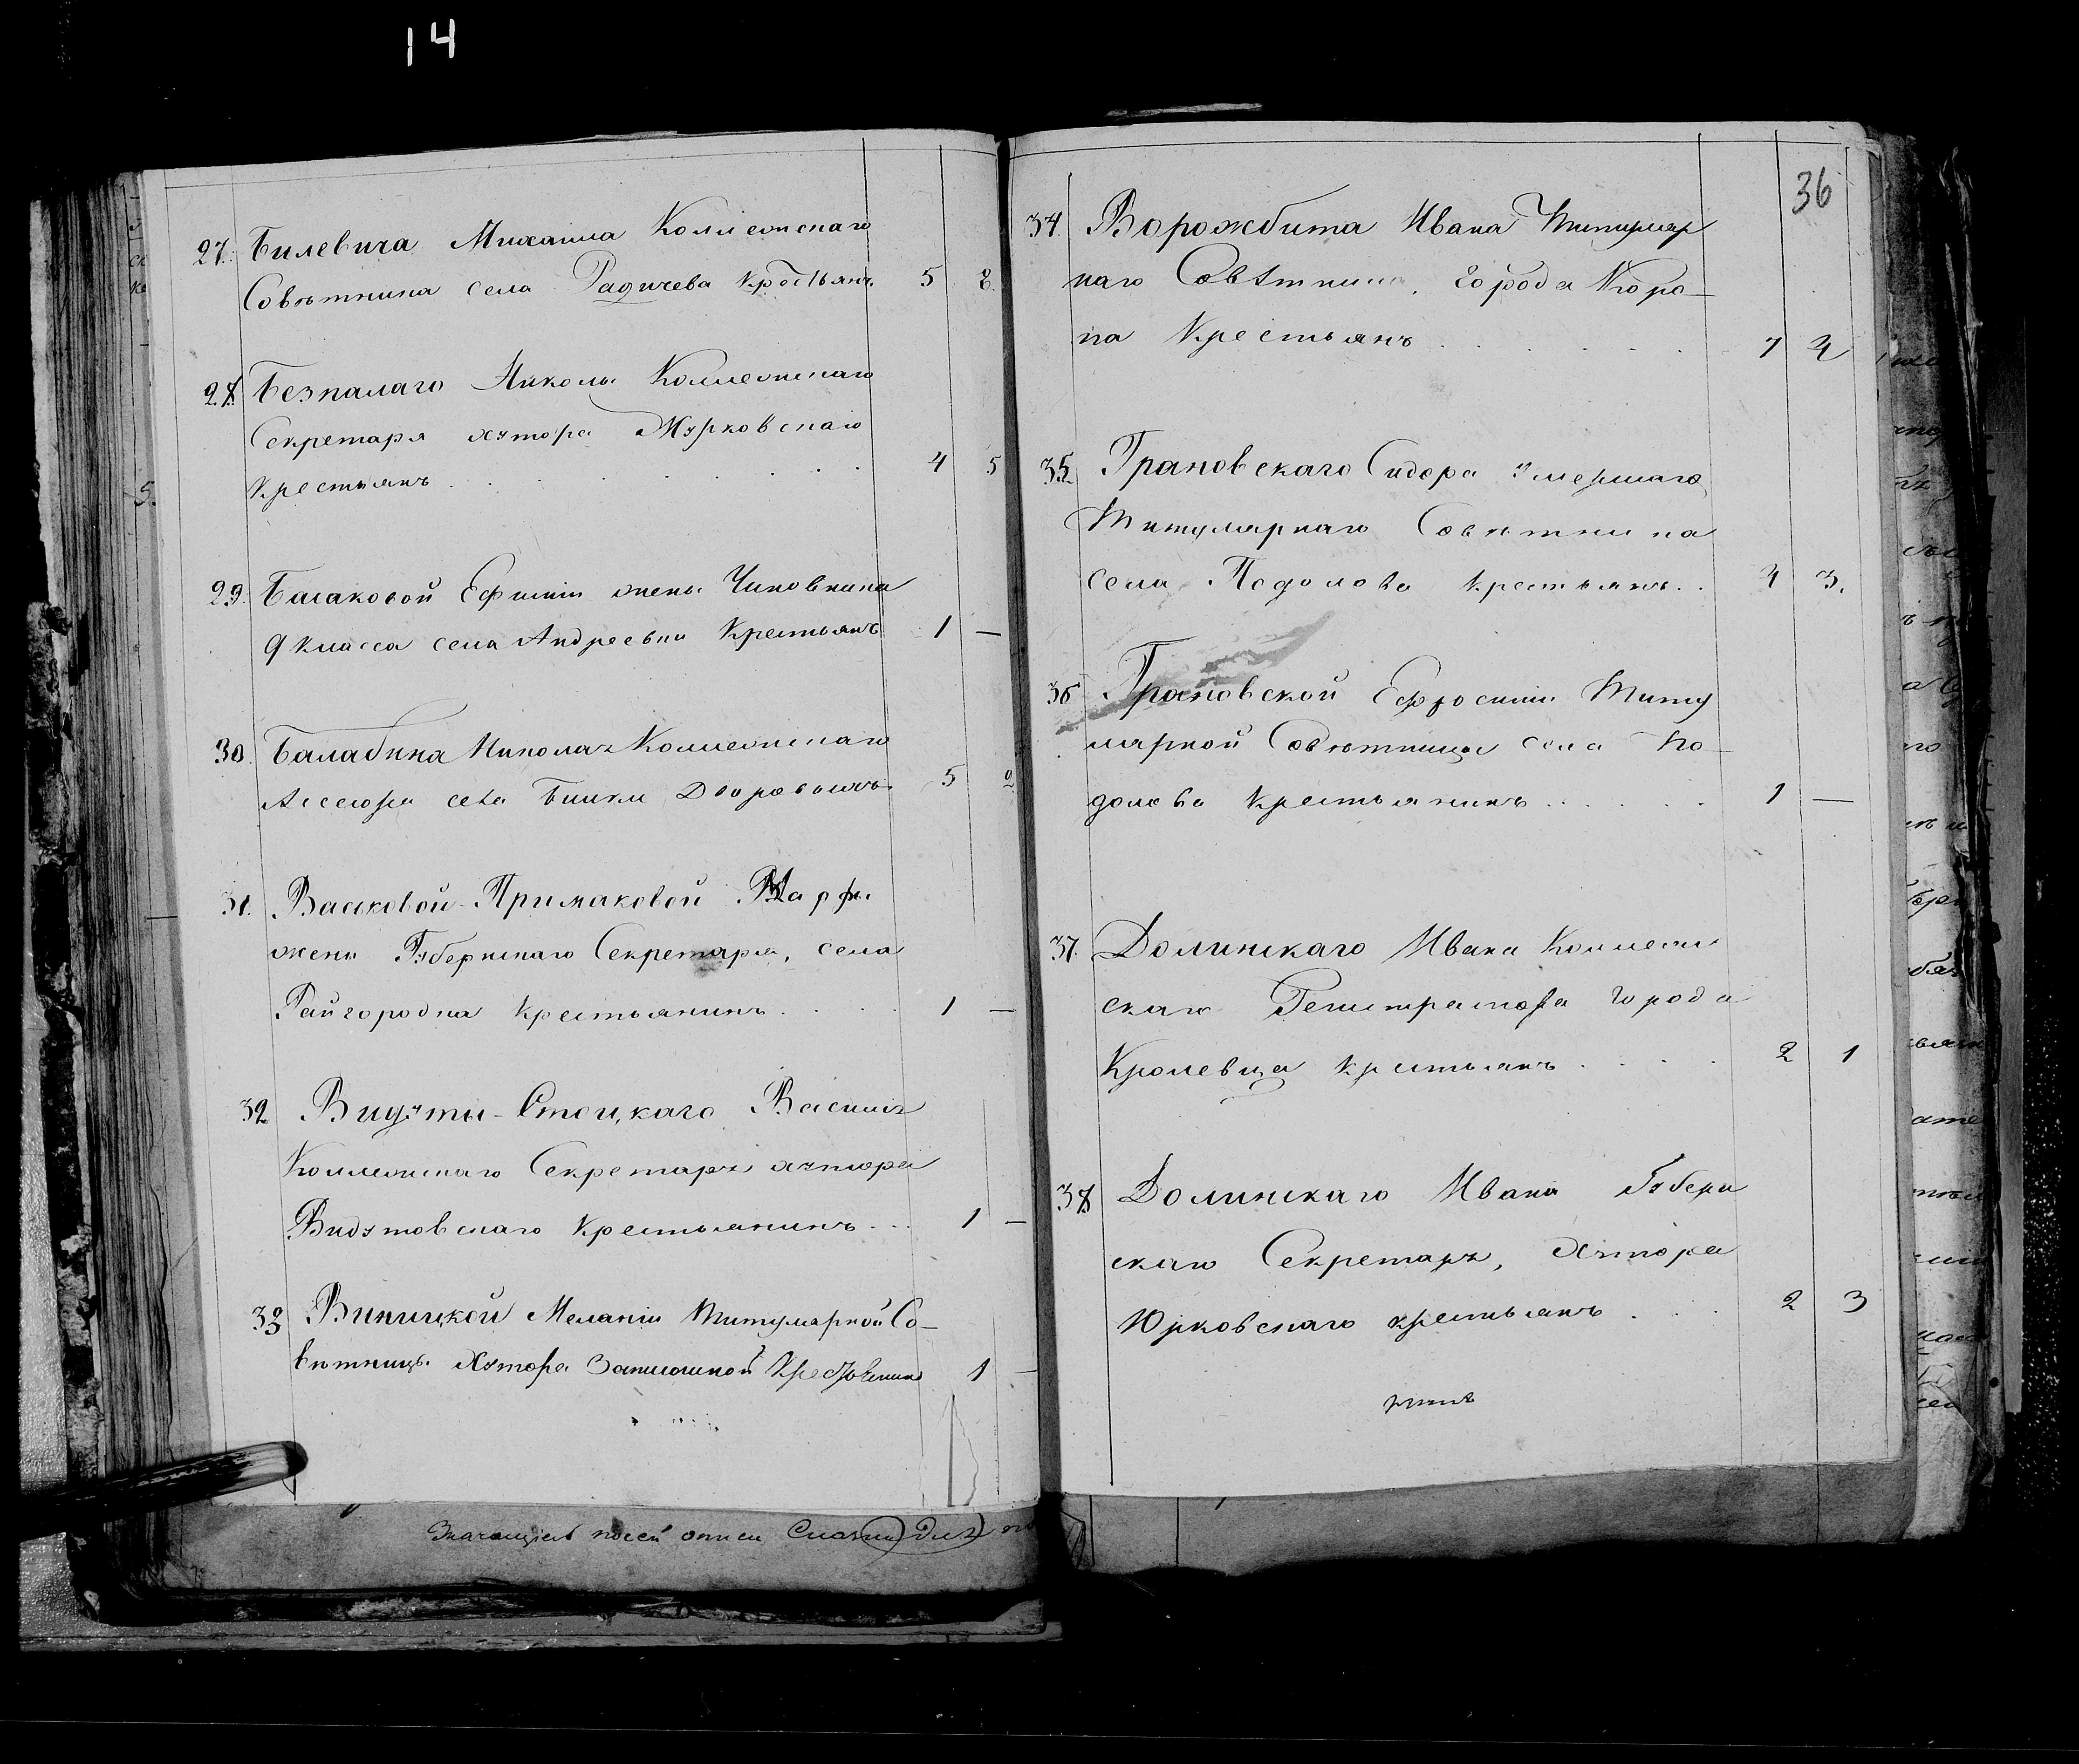 14
27. Билевича Михаила Коллежскаго
Совѣтника села Радичева Крестьянъ 5 8
28. Безпалаго Якова Коллежскаго
Секретаря хутора Мурковскаго
Крестьянъ . . . . . . 4 5
29. Басаковой Ефиміи жены Чиновника
9 класса села Андреевки Крестьянъ 1 —
30. Балабина Николая Коллежскаго
Ассесора села Дворовыхъ 5 2
31. Васьковой-Примаковой Марфы
жены Губернскаго Секретаря, села
Райгородка Крестьянинъ . . . . 1 —
32 Видути-Стоцкаго Василія
Коллежскаго Секретаря хутора
Видутовскаго Крестьянинъ . . . 1 —
33 Виницкой Меланіи Титулярной Со-
вѣтницы Хутора Крестьянинъ 1 —
Значащіеся по сей описи
36
34. Ворожбита Ивана Титуляр
наго Совѣтника, города Коро-
па Крестьянъ . . . . . . 7 4
35. Грановскаго Сидора умершаго
Титулярнаго Совѣтника
села Подолова Крестьянъ . . 4 3.
36 Грановской Ефросиніи Титу
лярной Совѣтницы села По-
долова Крестьянинъ . . . . . 1 —
37. Долинскаго Ивана Коллеж
скаго Регистратора города
Кролевца Крестьянъ . . . . 2 1
38 Долинскаго Ивана Губерн
скаго Секретаря, Хутора
Юрковскаго крестьянъ . . . 2 3